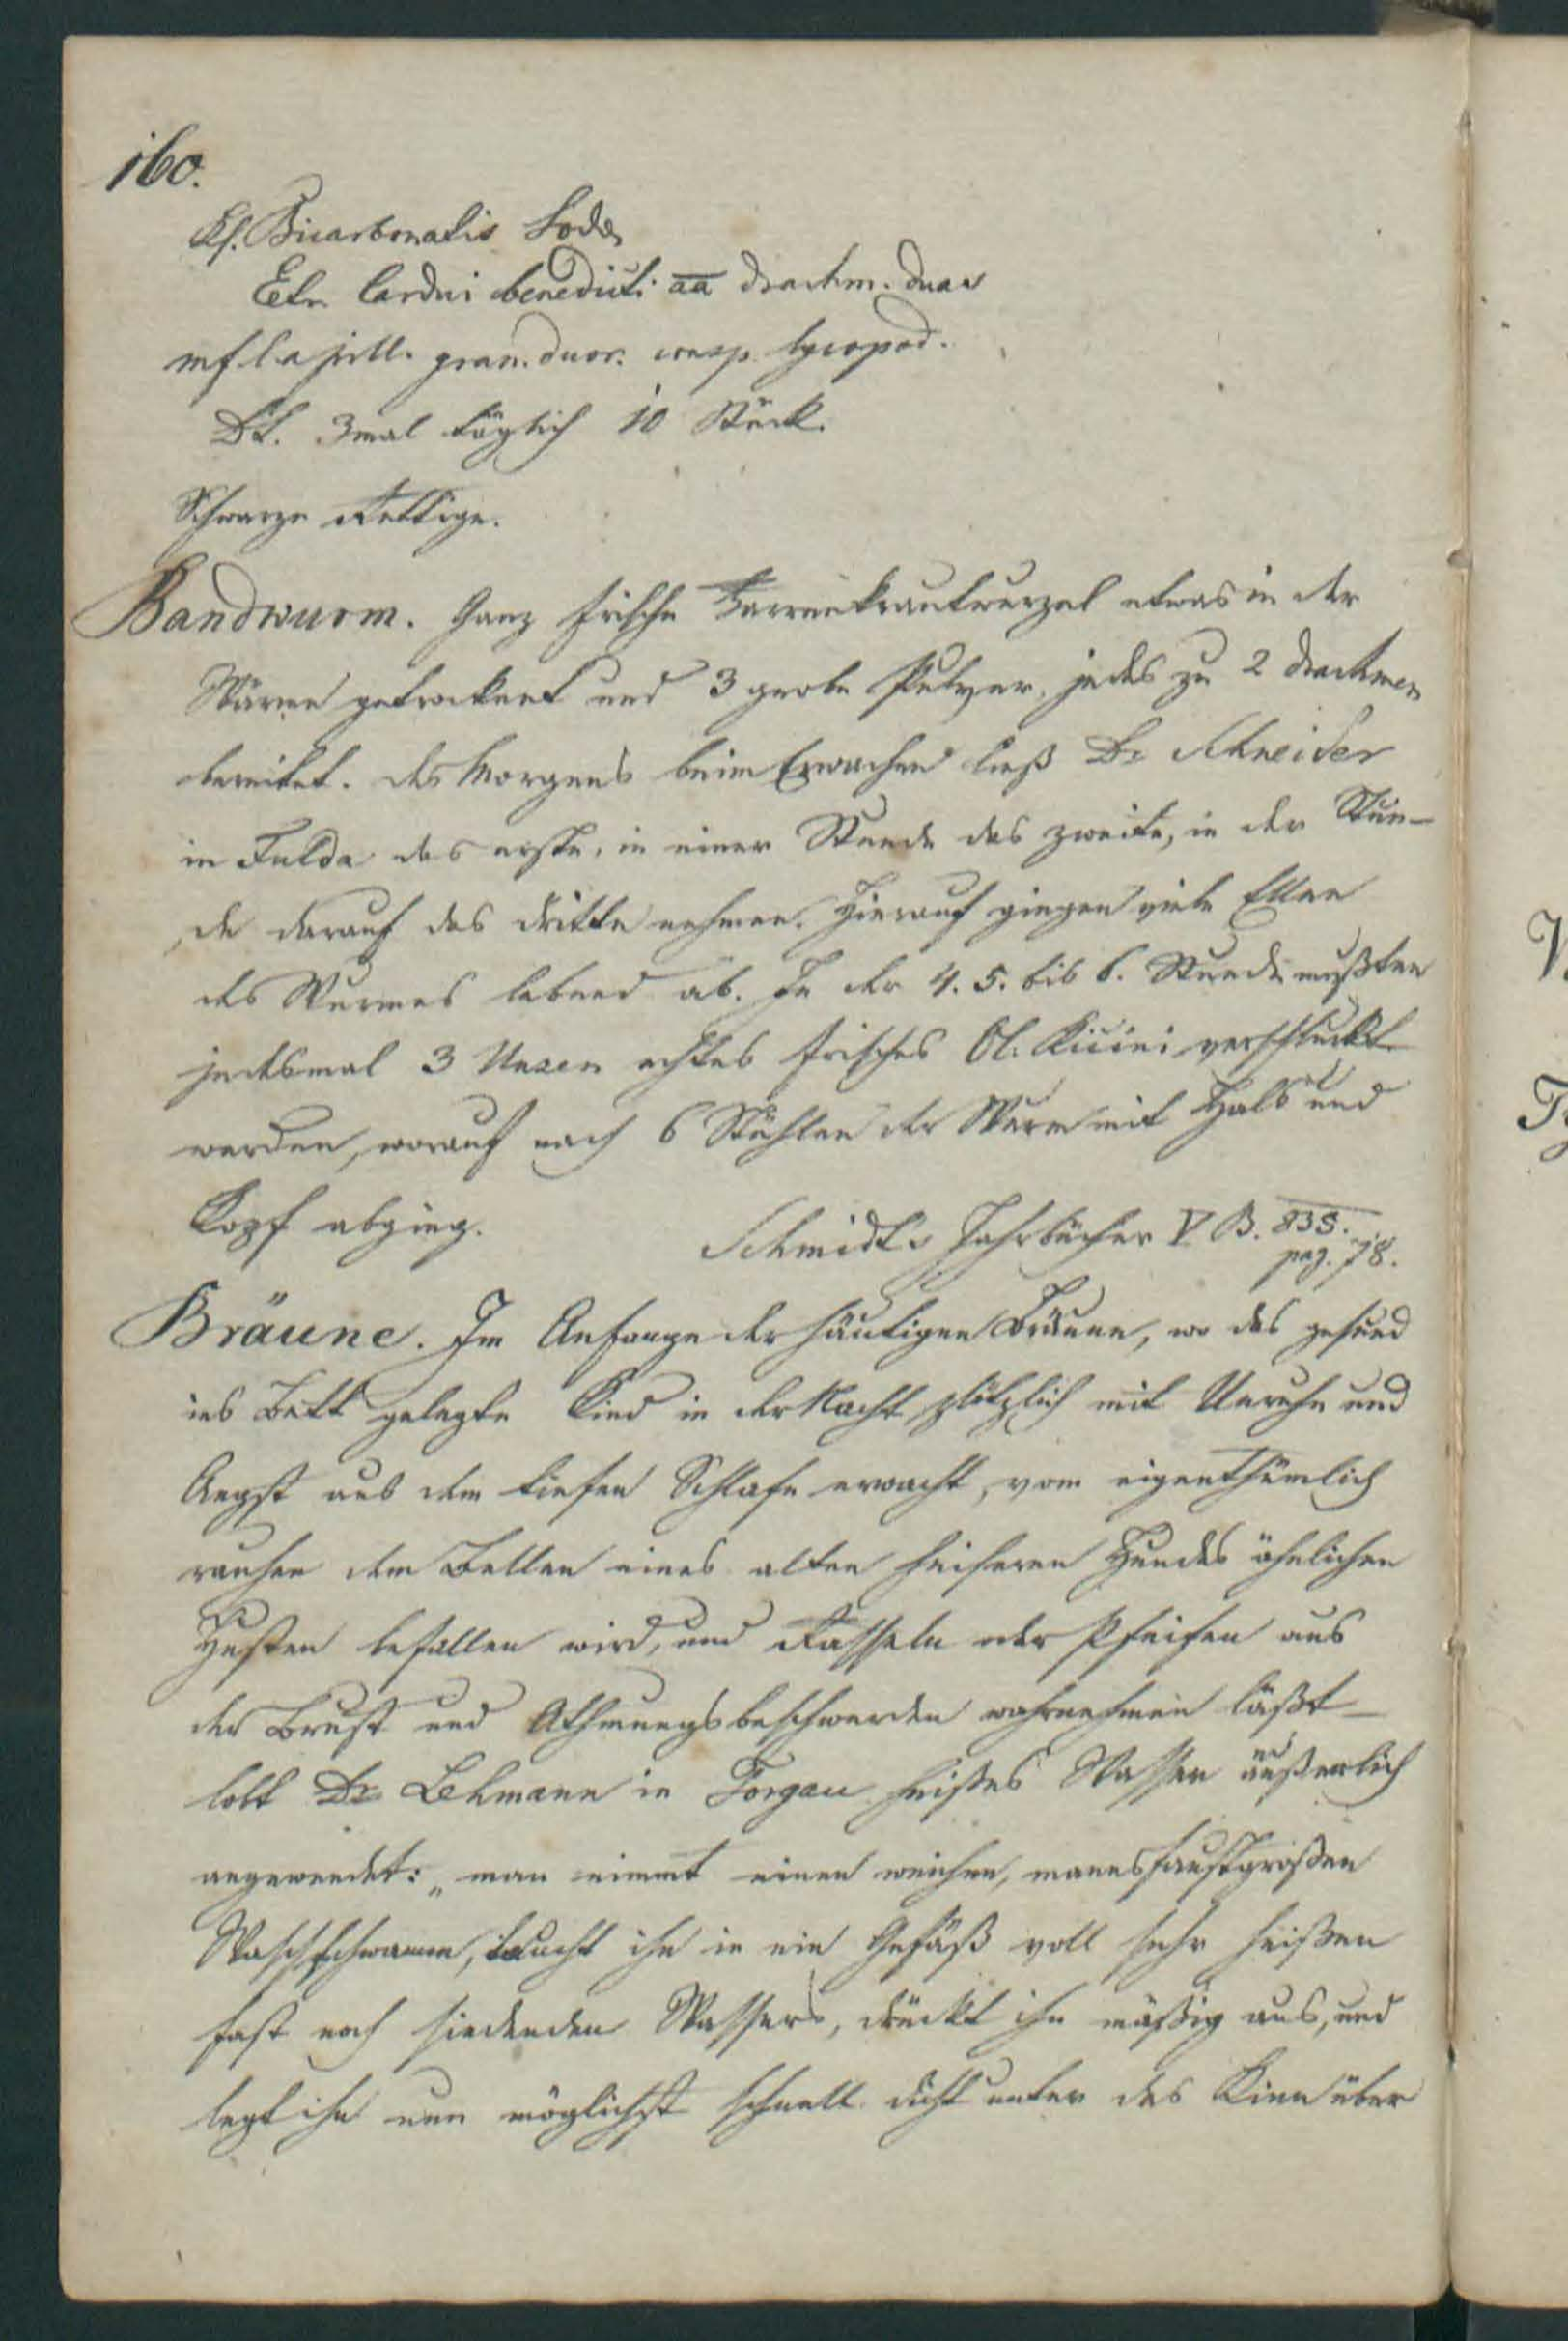 160.
Rf. Bicarbonatis Sodæ
Etr. Cardui benedicti aa drachm. duas
mf l a pill. gran. duor. consp. lycopod.
Dt. 3mal täglich 10 Stück.
Schwarze Rettige.
Bandwurm. Ganz frische Farrenkrautwurzel etwas in der
Wärme getrocknet und 3 grobe Pulver, jedes zu 2 Drachmen
bereitet. Des Morgens beim Erwachen ließ Dr Schneider
in Fulda das erste, in einer Stunde das zweite, in der Stun-
de darauf das dritte nehmen. Hierauf gingen viele Ellen
des Wurmes lebend ab. In der 4. 5. bis 6. Stunde mußten
jedesmal 3 Unzen echtes frisches Ol. Ricini verschluckt
werden, worauf nach 6 Stühlen der Wurm mit Hals und
Kopf abging.
Schmidts Jahrbücher V B. 835.
pag. 78.
Bräune. Im Anfange der häutigen Bräune, wo das gesund
ins Bett gelegte Kind in der Nacht plötzlich mit Unruhe und
Angst aus dem tiefen Schlafe erwacht, vom eigenthümlich
rauhen dem Bellen eines alten heiseren Hundes ähnlichen
Husten befallen wird, und Rasseln oder Pfeifen aus
der Brust und Athmungsbeschwerden wahrnehmen läßt –
lobt Dr Lehmann in Torgau heißes Wasser äußerlich
angewendet: „man nimmt einen weichen, mannsfaustgroßen
Waschschwamm, taucht ihn in ein Gefäß voll sehr heißen
fast noch siedenden Wassers, drückt ihn mäßig aus, und
legt ihn nun möglichst schnell dicht unter das Kinn über